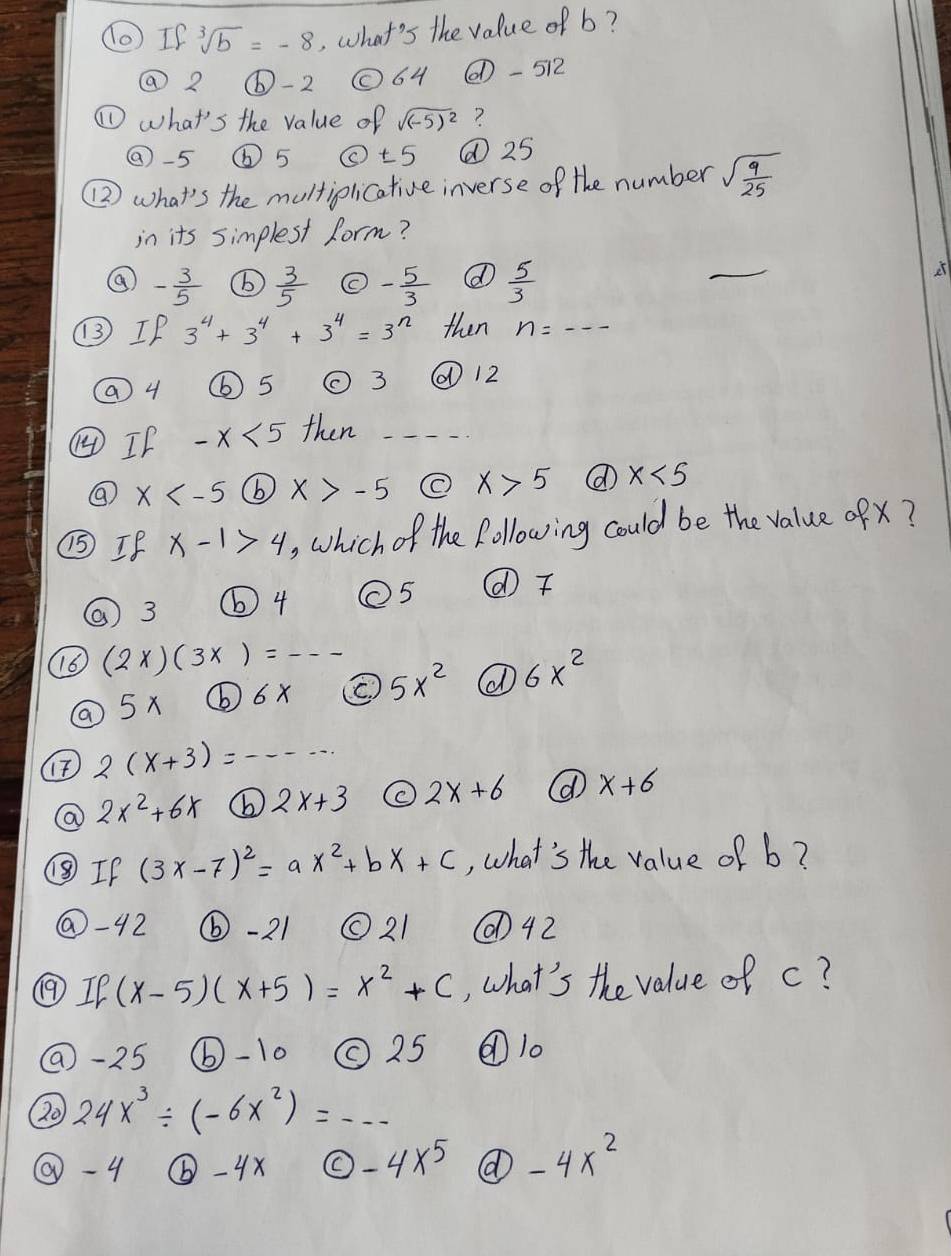 ⑩ If ∛b = - 8, what's the value of b ?
ⓐ 2 ⓑ -2 ⓒ 64 ⓓ - 512
⑪ what's the value of √(-5)² ?
ⓐ -5 ⓑ 5 ⓒ ±5 ⓓ 25
⑫ what's the multiplicative inverse of the number √(9/25)
in its simplest form ?
ⓐ - 3/5 ⓑ 3/5 ⓒ - 5/3 ⓓ 5/3
⑬ If 3⁴ + 3⁴ + 3⁴ = 3ⁿ then n = ---
ⓐ 4 ⓑ 5 ⓒ 3 ⓓ 12
⑭ If -x < 5 then -----
ⓐ x < -5 ⓑ x > -5 ⓒ x > 5 ⓓ x < 5
⑮ If x - 1 > 4, which of the following could be the value of x ?
ⓐ 3 ⓑ 4 ⓒ 5 ⓓ 7
⑯ (2x)(3x) = ---
ⓐ 5x ⓑ 6x ⓒ 5x² ⓓ 6x²
⑰ 2 (x+3) = ------
ⓐ 2x²+6x ⓑ 2x+3 ⓒ 2x+6 ⓓ x+6
⑱ If (3x-7)² = ax² + bx + c, what's the value of b ?
ⓐ -42 ⓑ -21 ⓒ 21 ⓓ 42
⑲ If (x-5)(x+5) = x² + c, what's the value of c ?
ⓐ -25 ⓑ -10 ⓒ 25 ⓓ 10
⑳ 24x³ ÷ (-6x²) = ---
ⓐ -4 ⓑ -4x ⓒ -4x⁵ ⓓ -4x²